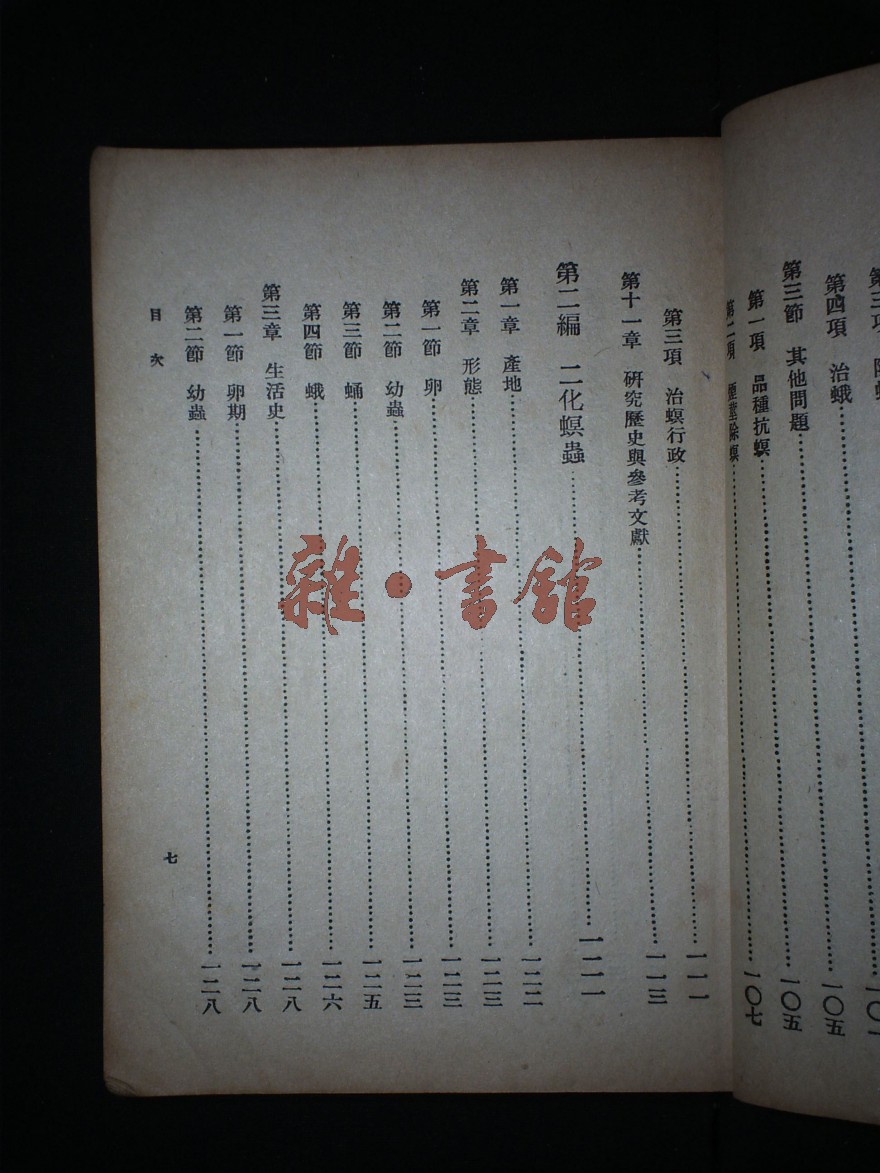 第四項 治蛾……一〇五
第三節 其他問題……一〇五
第一項 品種抗螟……一〇七
第三項 治螟行政……一一一
第十一章 研究歷史與參考文獻……一一三
第二編 二化螟蟲……一二一
第一章 產地……一二二
第二章 形態……一二三
第一節 卵……一二三
第二節 幼蟲……一二三
第三節 蛹……一二五
第四節 蛾……一二六
第三章 生活史……一二八
第一節 卵期……一二八
第二節 幼蟲……一二八
目次
七
雜·書館